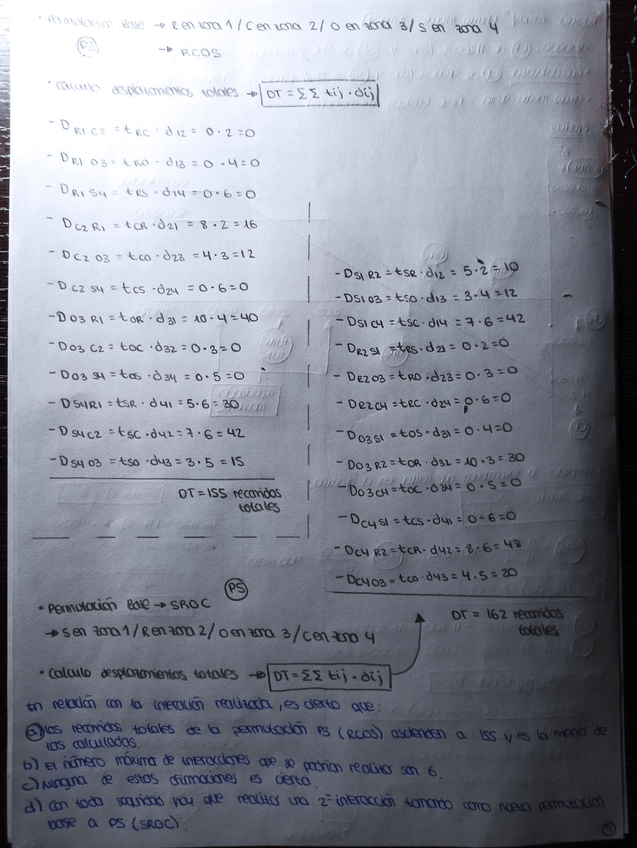 · Permutación Base → R en zona 1 / C en zona 2 / O en zona 3 / S en zona 4
P3 → RCOS
· Calculo desplazamientos totales → DT = ΣΣ tij · dij
- DR1C2 = tRC · d12 = 0·2=0
- DR1O3 = tRO · d13 = 0·4=0
- DR1S4 = tRS · d14 = 0·6=0
- DC2R1 = tCR · d21 = 8·2=16
- DC2O3 = tCO · d23 = 4·3=12
- DC2S4 = tCS · d24 = 0·6=0
- DO3R1 = tOR · d31 = 10·4=40
- DO3C2 = tOC · d32 = 0·3=0
- DO3S4 = tOS · d34 = 0·5=0
- DS4R1 = tSR · d41 = 5·6=30
- DS4C2 = tSC · d42 = 7·6=42
- DS4O3 = tSO · d43 = 3·5=15
DT = 155 recorridos
totales
- DS1R2 = tSR · d12 = 5·2=10
- DS1O3 = tSO · d13 = 3·4=12
- DS1C4 = tSC · d14 = 7·6=42
- DR2S1 = tRS · d21 = 0·2=0
- DR2O3 = tRO · d23 = 0·3=0
- DR2C4 = tRC · d24 = 0·6=0
- DO3S1 = tOS · d31 = 0·4=0
- DO3R2 = tOR · d32 = 10·3=30
- DO3C4 = tOC · d34 = 0·5=0
- DC4S1 = tCS · d41 = 0·6=0
- DC4R2 = tCR · d42 = 8·6=48
- DC4O3 = tCO · d43 = 4·5=20
DT = 162 recorridos
totales
P5
· Permutación Base → SROC
→ S en zona 1 / R en zona 2 / O en zona 3 / C en zona 4
· Calculo desplazamientos totales → DT = ΣΣ tij · dij
En relación con la interación realizada, es cierto que:
a) los recorridos totales de la permutación P3 (RCOS) ascienden a 155 y es la menor de
las calculadas.
b) El número máximo de interacciones que se podrían realizar son 6.
c) Ninguna de estas afirmaciones es cierta.
d) Con toda seguridad hay que realizar una 2ª interacción tomando como nueva permutación
base a P5 (SROC).